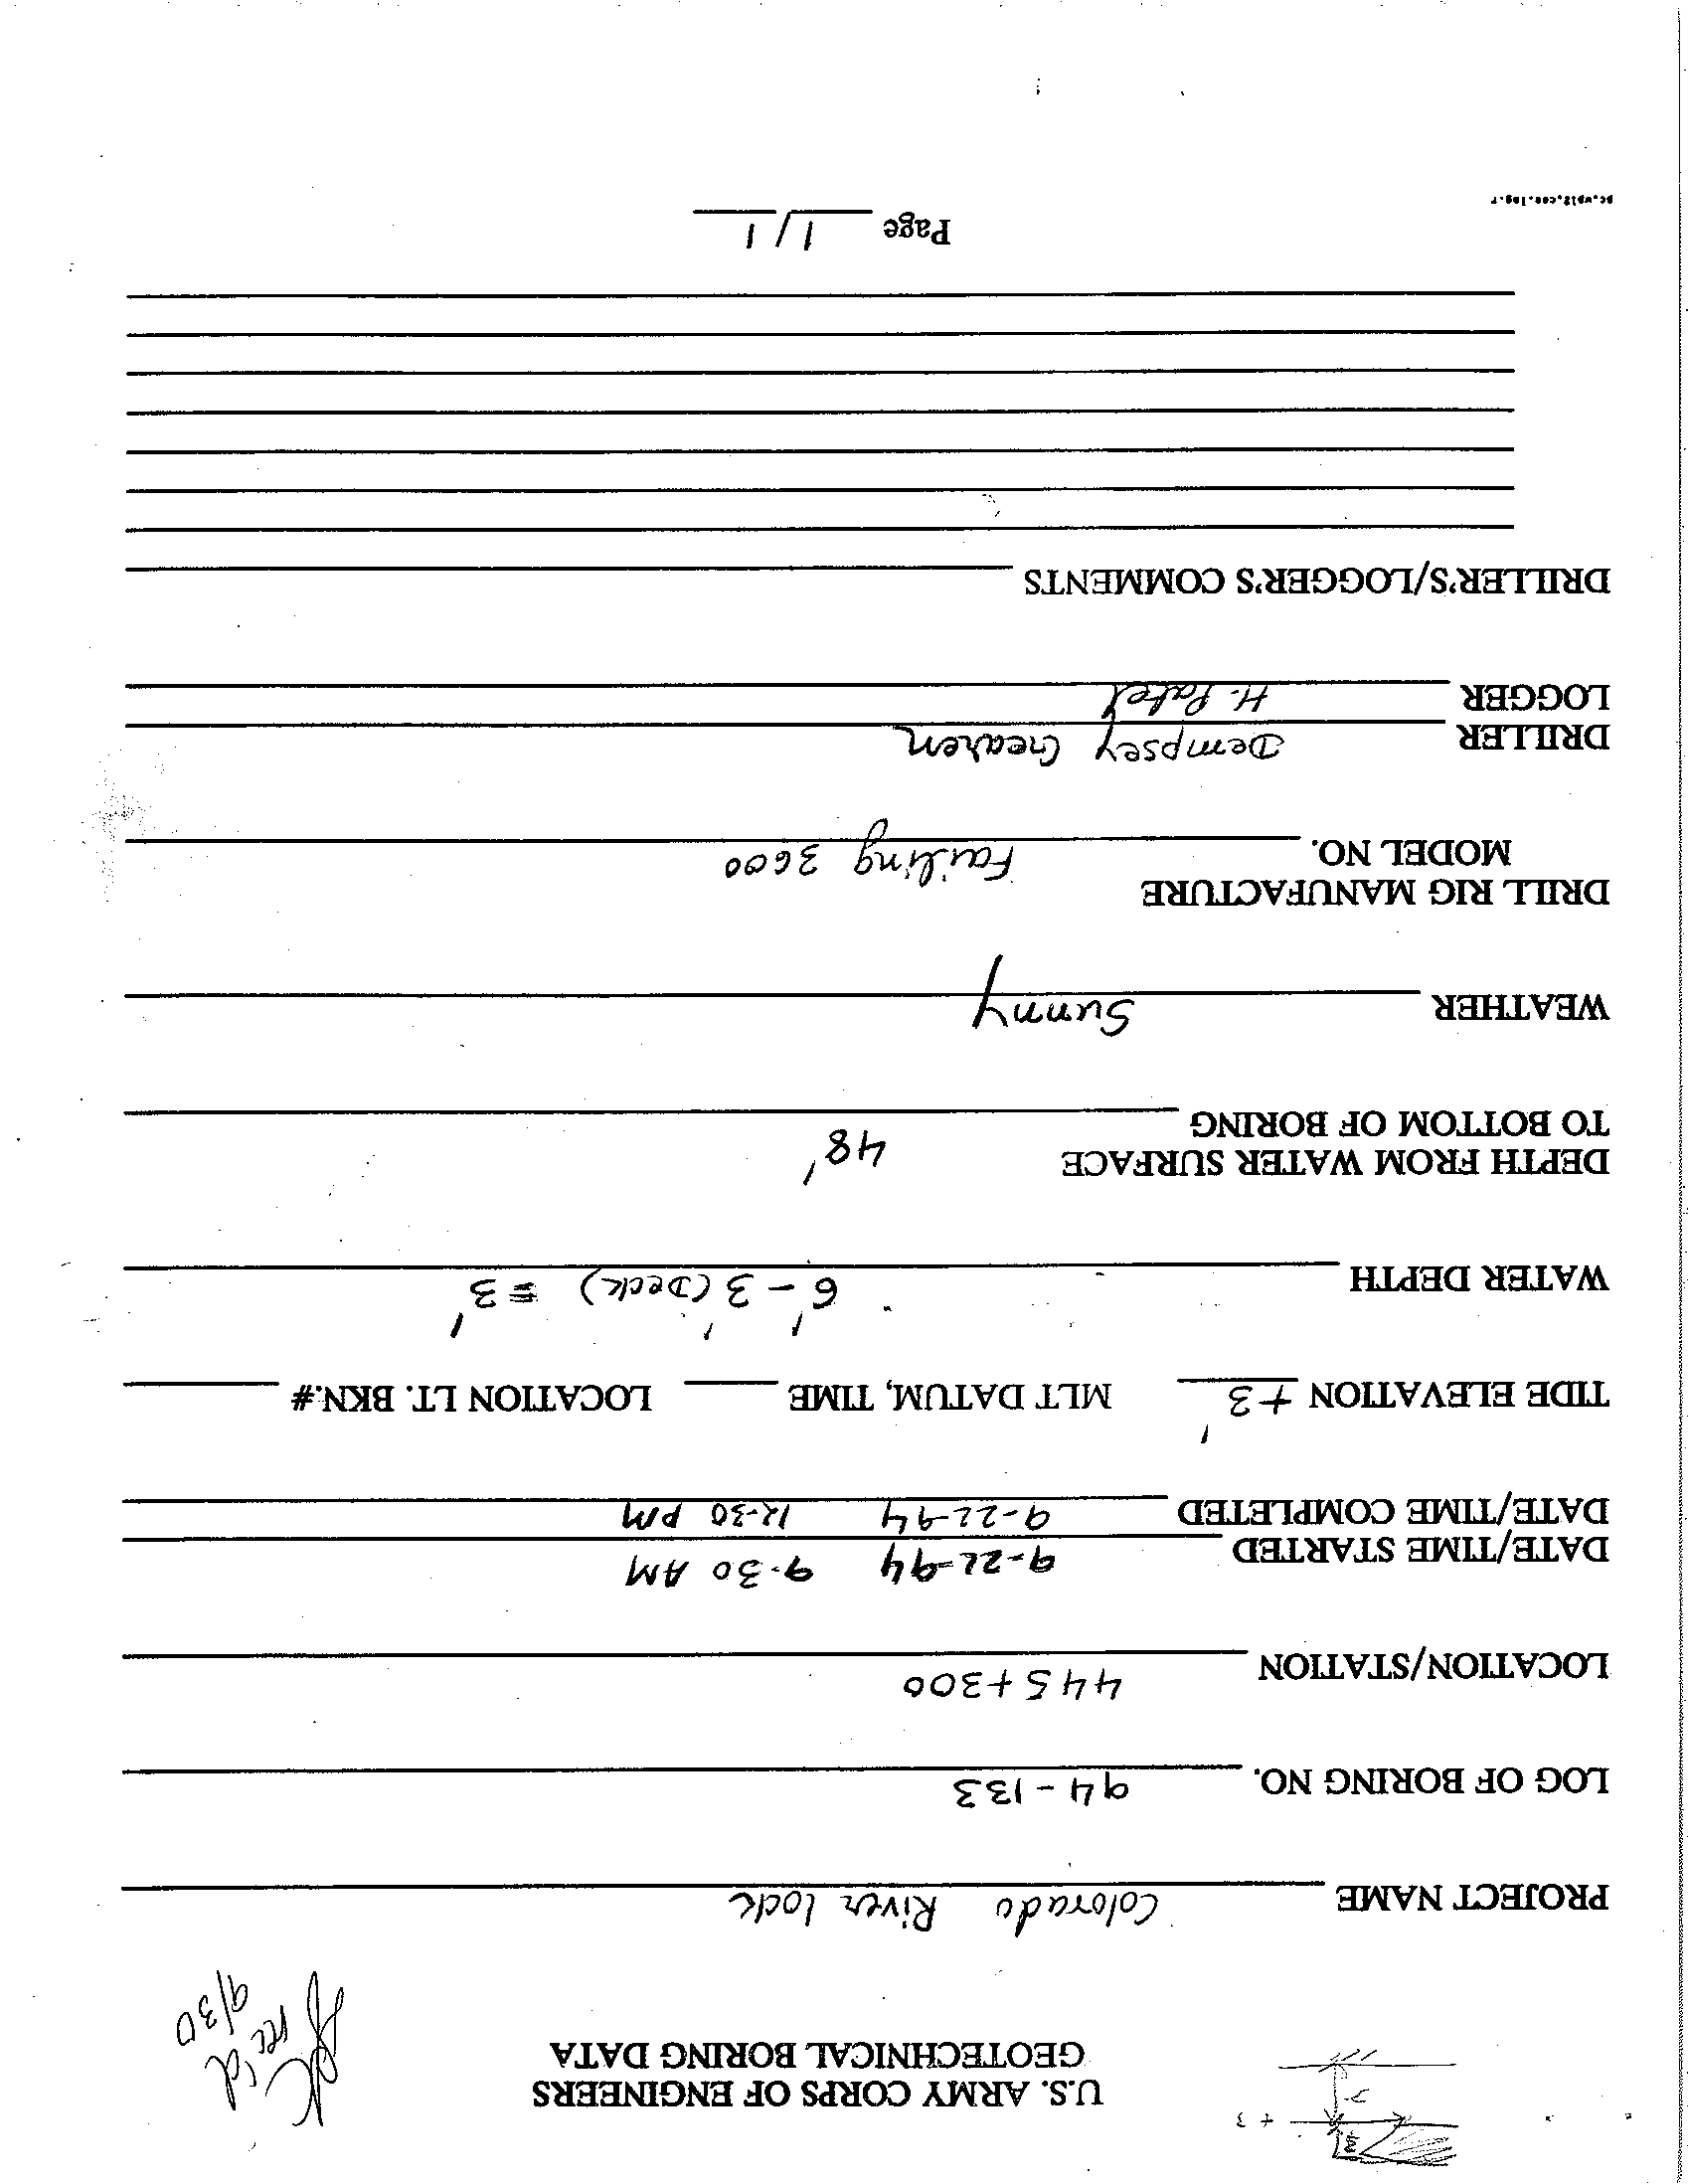 +3
3'
3'
U.S. ARMY CORPS OF ENGINEERS
GEOTECHNICAL BORING DATA
rec'd
9/30
PROJECT NAME Colorado River lock
LOG OF BORING NO. 94-133
LOCATION/STATION 445+300
DATE/TIME STARTED 9-22-94 9-30 AM
DATE/TIME COMPLETED 9-22-94 12-30 PM
TIDE ELEVATION +3' MLT DATUM, TIME LOCATION LT. BKN.#
WATER DEPTH 6' - 3' (Deck) = 3'
DEPTH FROM WATER SURFACE
TO BOTTOM OF BORING 48'
WEATHER Sunny
DRILL RIG MANUFACTURE
MODEL NO. Failing 3600
DRILLER Dempsey Gearen
LOGGER H. Patel
DRILLER'S/LOGGER'S COMMENTS
Page 1/1
pc.vp18,coe.log.r